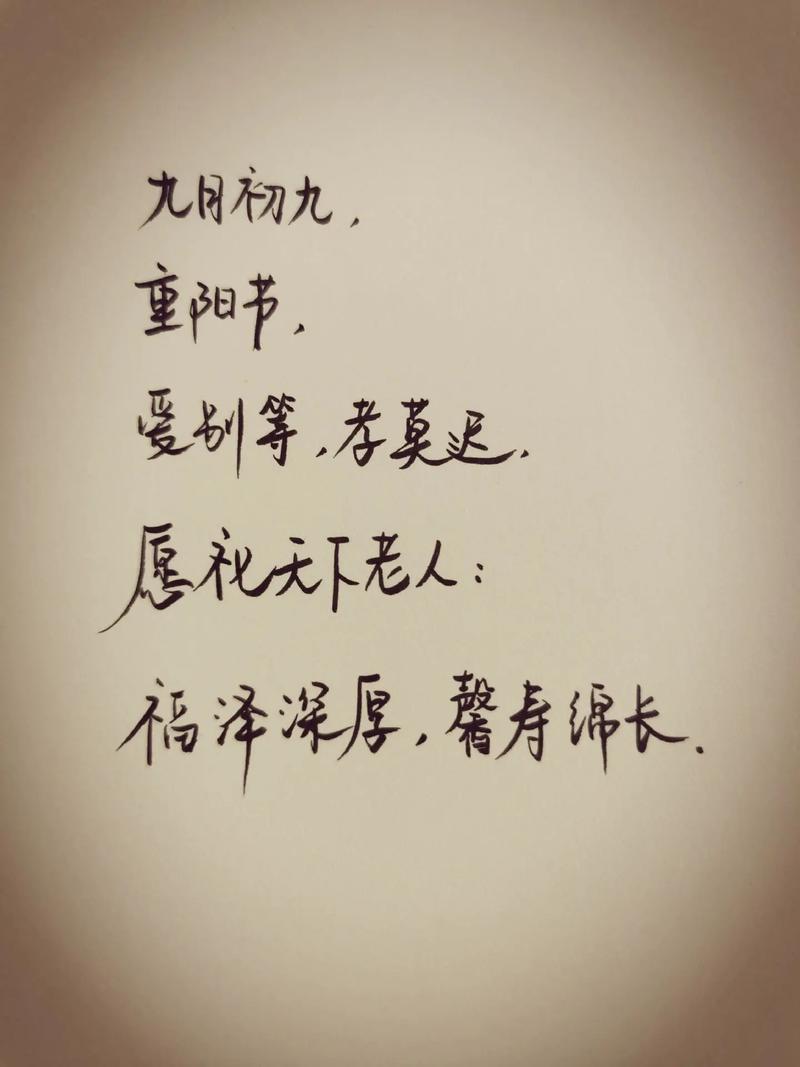 九月初九，
重阳节，
爱别等，孝莫迟，
愿祝天下老人：
福泽深厚，馨寿绵长．